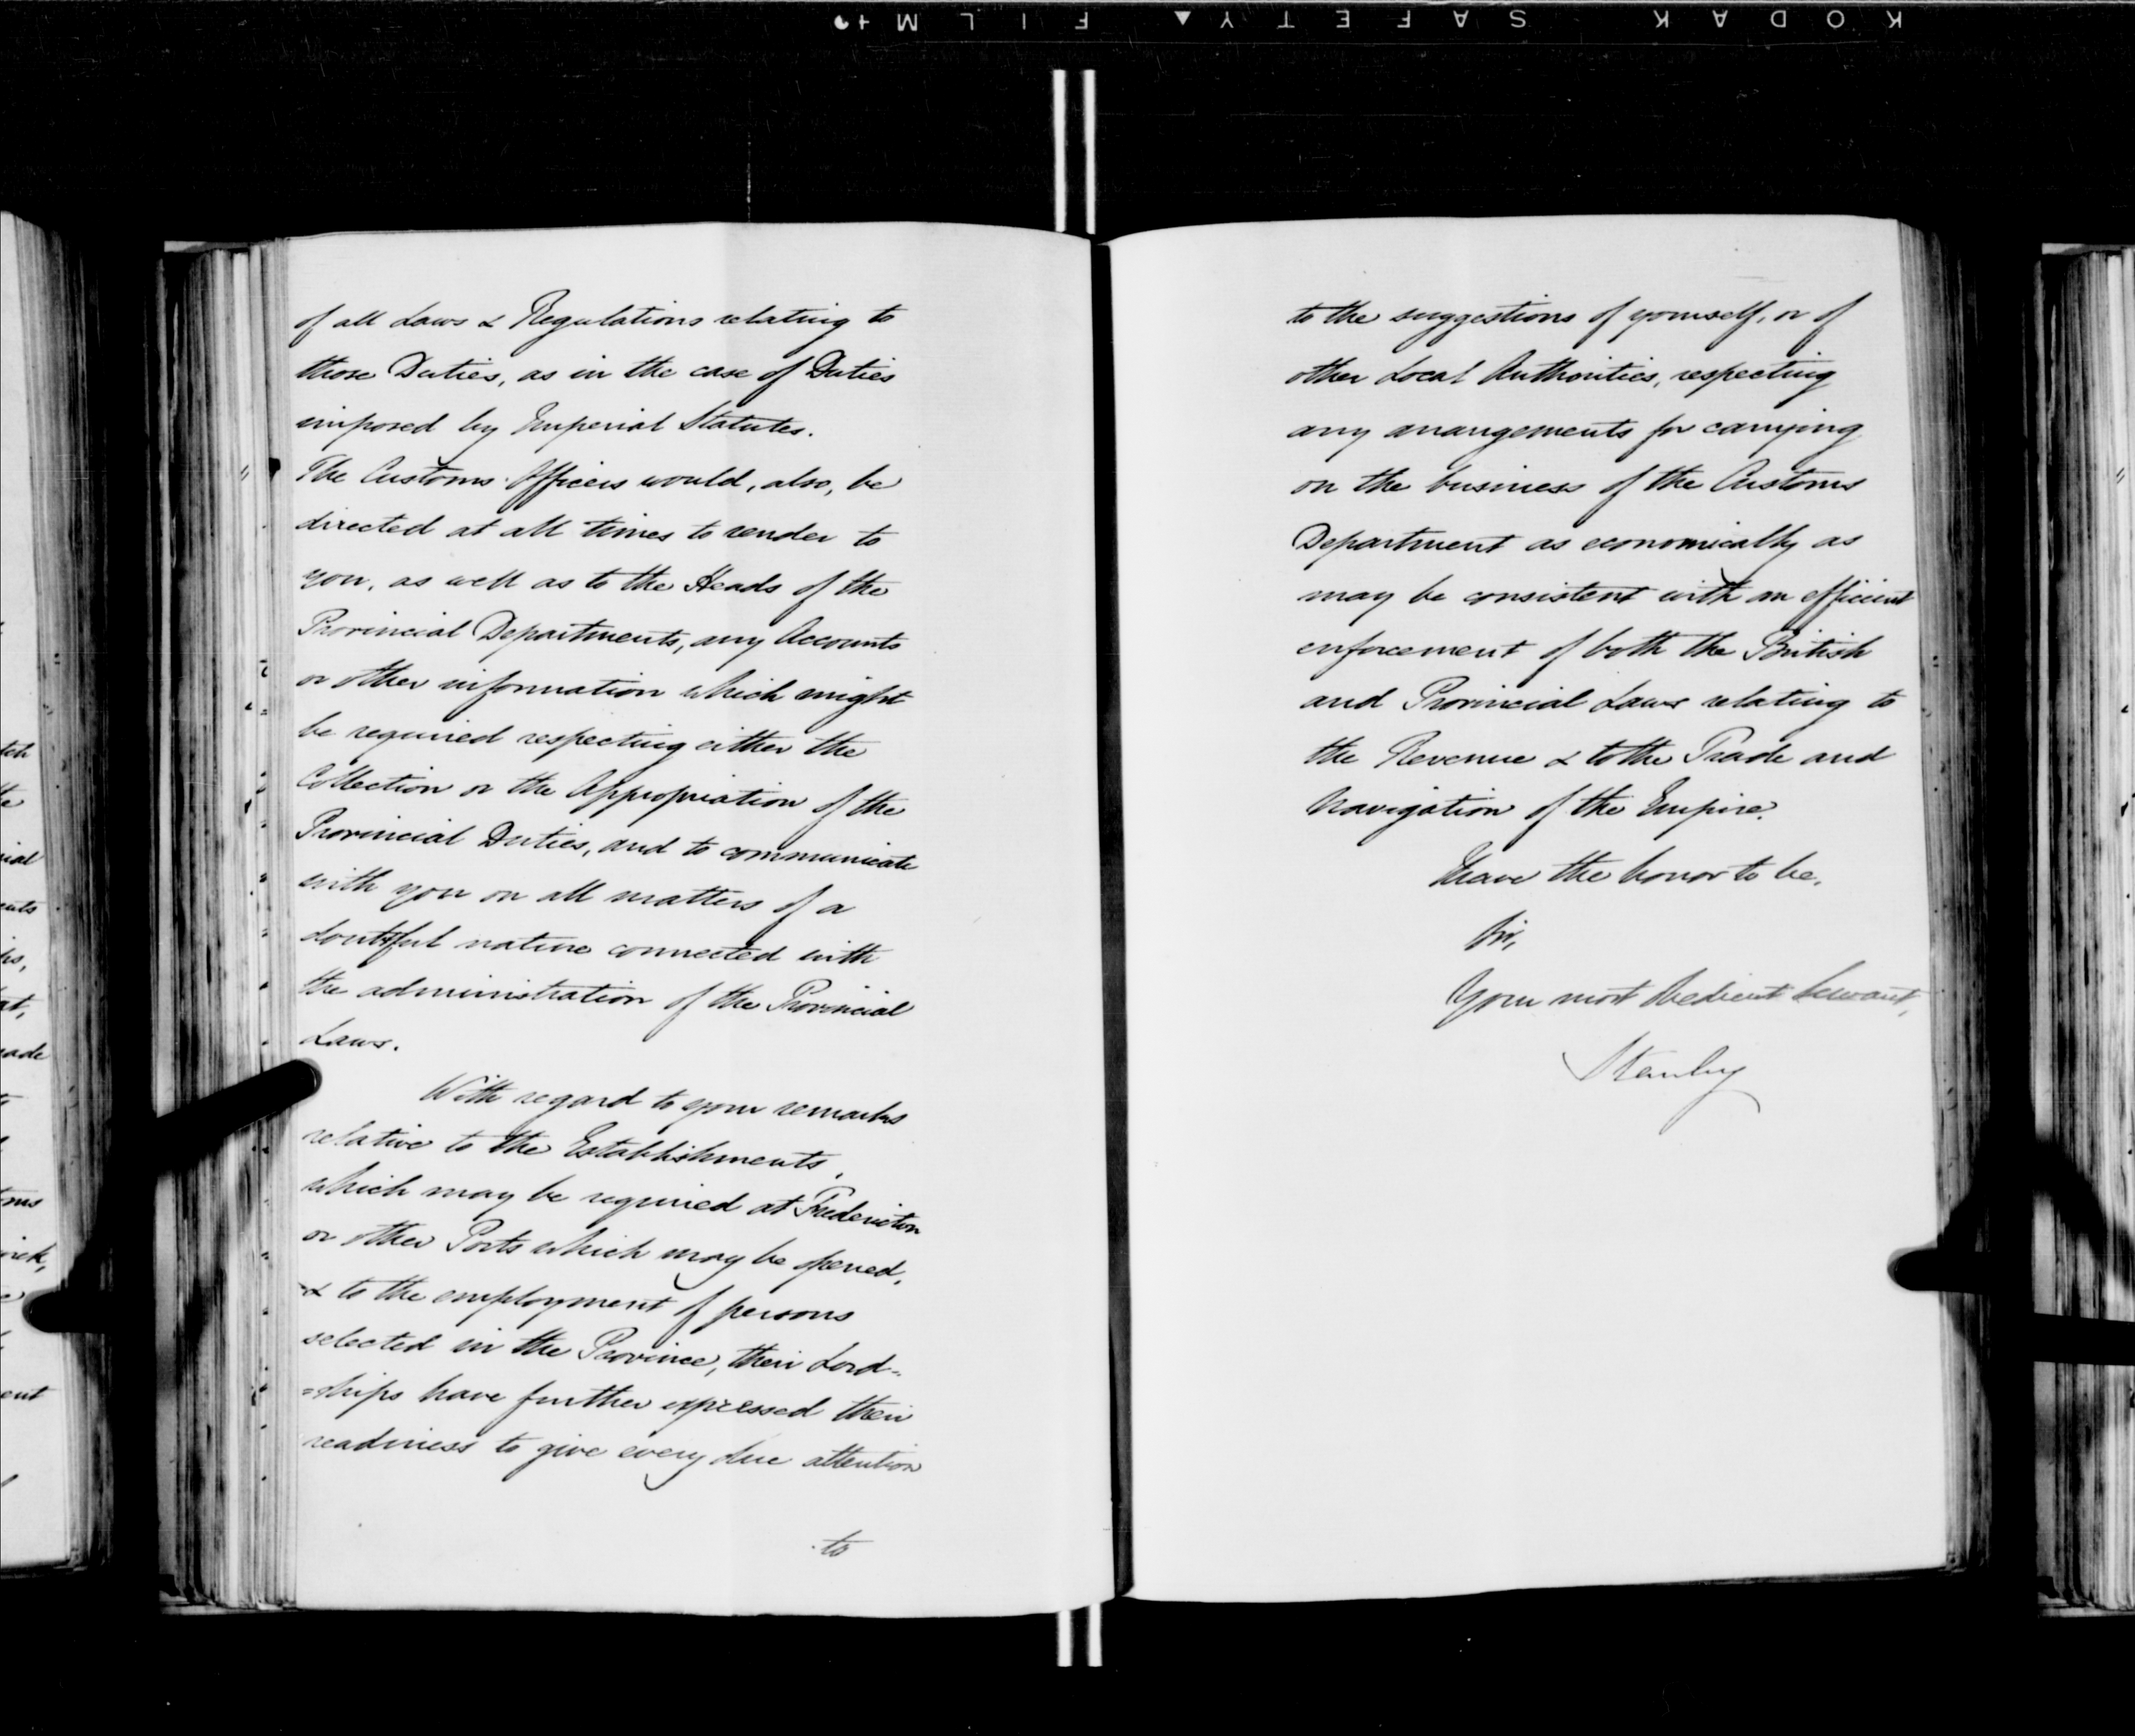 KODAK SAFETY FILM
of all Laws & Regulations relating to
those Duties, as in the case of Duties
imposed by Imperial Statutes.
The Customs Officers would, also, be
directed at all times to render to
you, as well as to the Heads of the
Provincial Departments, any Accounts
or other information which might
be required respecting either the
Collection or the Appropriation of the
Provincial Duties, and to communicate
with you on all matters of a
doubtful nature connected with
the administration of the Provincial
Laws.
With regard to your remarks
relative to the Establishments,
which may be required at Fredericton
or other Ports which may be opened,
& to the employment of persons
selected in the Province, their Lord-
=ships have further expressed their
readiness to give every due attention
to
to the suggestions of yourself, or of
other Local Authorities, respecting
any arrangements for carrying
on the business of the Customs
Department as economically as
may be consistent with an efficient
enforcement of both the British
and Provincial Laws relating to
the Revenue & to the Trade and
Navigation of the Empire.
I have the honor to be,
Sir,
Your most Obedient Servant,
Stanley